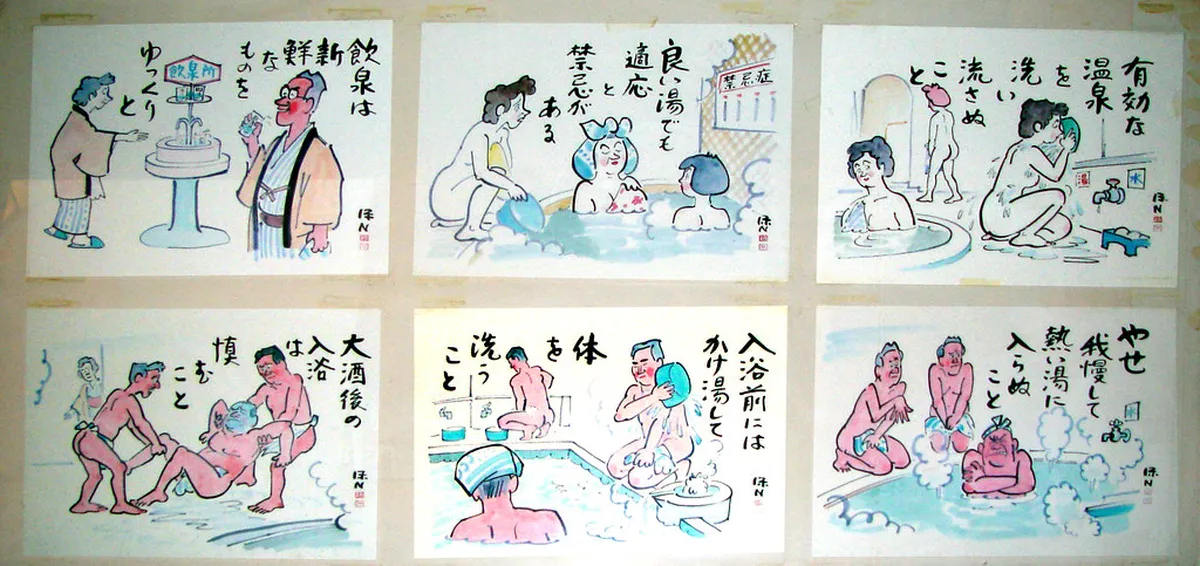 飲泉は
新鮮な
ものを
ゆっくり
と
飲泉所
良い湯でも
適応
と
禁忌が
ある
禁忌症
有効な
温泉
を
洗い
流さぬ
こと
温
水
大酒後の
入浴
は
慎
む
こと
入浴前には
かけ湯して
体
を
洗う
こと
やせ
我慢して
熱い湯に
入らぬ
こと
水